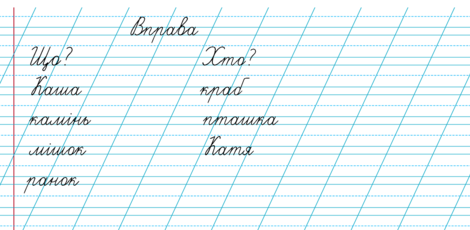 Вправа
Що? Хто?
Каша краб
камінь пташка
мішок Катя
ранок